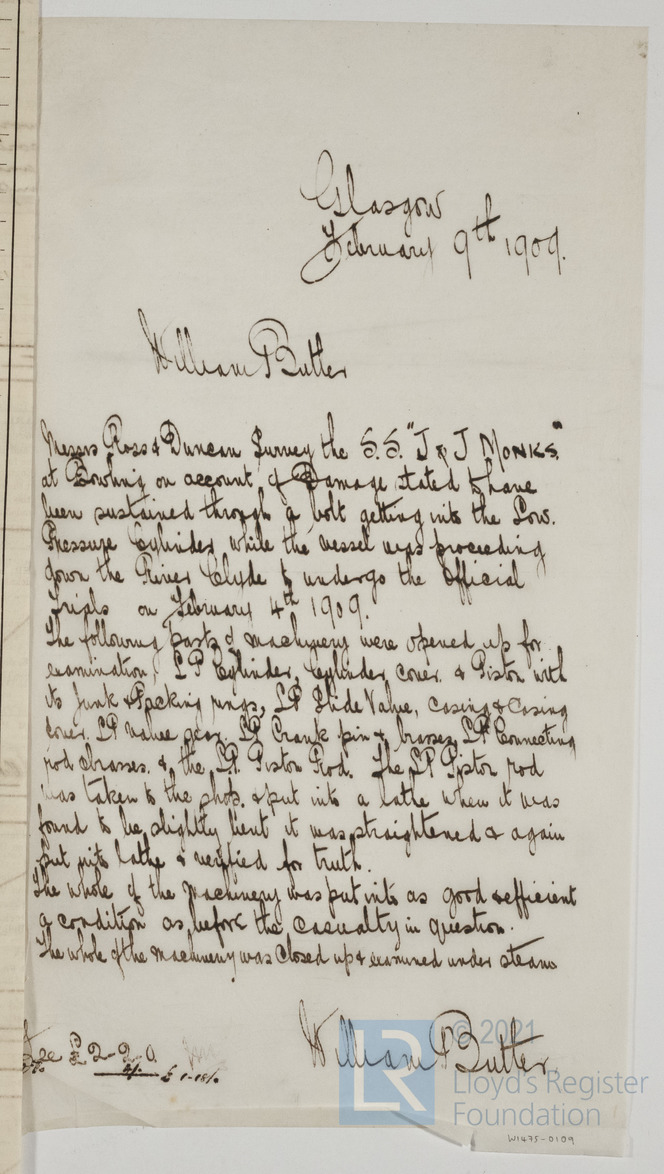 Glasgow
February 9th 1909.
William Butler
Messrs Ross & Duncan Survey the S.S. "J & J MONKS."
at Bowling on account of Damage stated to have
been sustained through a bolt getting into the Low.
Pressure Cylinder, while the vessel was proceeding
down the River Clyde to undergo the official
Trials on February 4th 1909.
The following parts of machinery were opened up for
examination, LP Cylinder, Cylinder cover. & Piston with
its Junk & Packing rings, LP Slide Valve, Casing & Casing
Cover. LP valve gear. LP Crank pin & brasses, LP Connecting
rod & brasses. & the LP. Piston Rod. The LP Piston rod
was taken to the shop. & put into a lathe when it was
found to be slightly bent it was straightened & again
put into lathe & verified for truth.
The whole of the machinery was put into as good & efficient
a condition as before the casualty in question.
The whole of the machinery was closed up & examined under steam
William Butler.
Fee £ 2-2-0.
© 2021
LR
Lloyd's Register
Foundation
W1475-0109